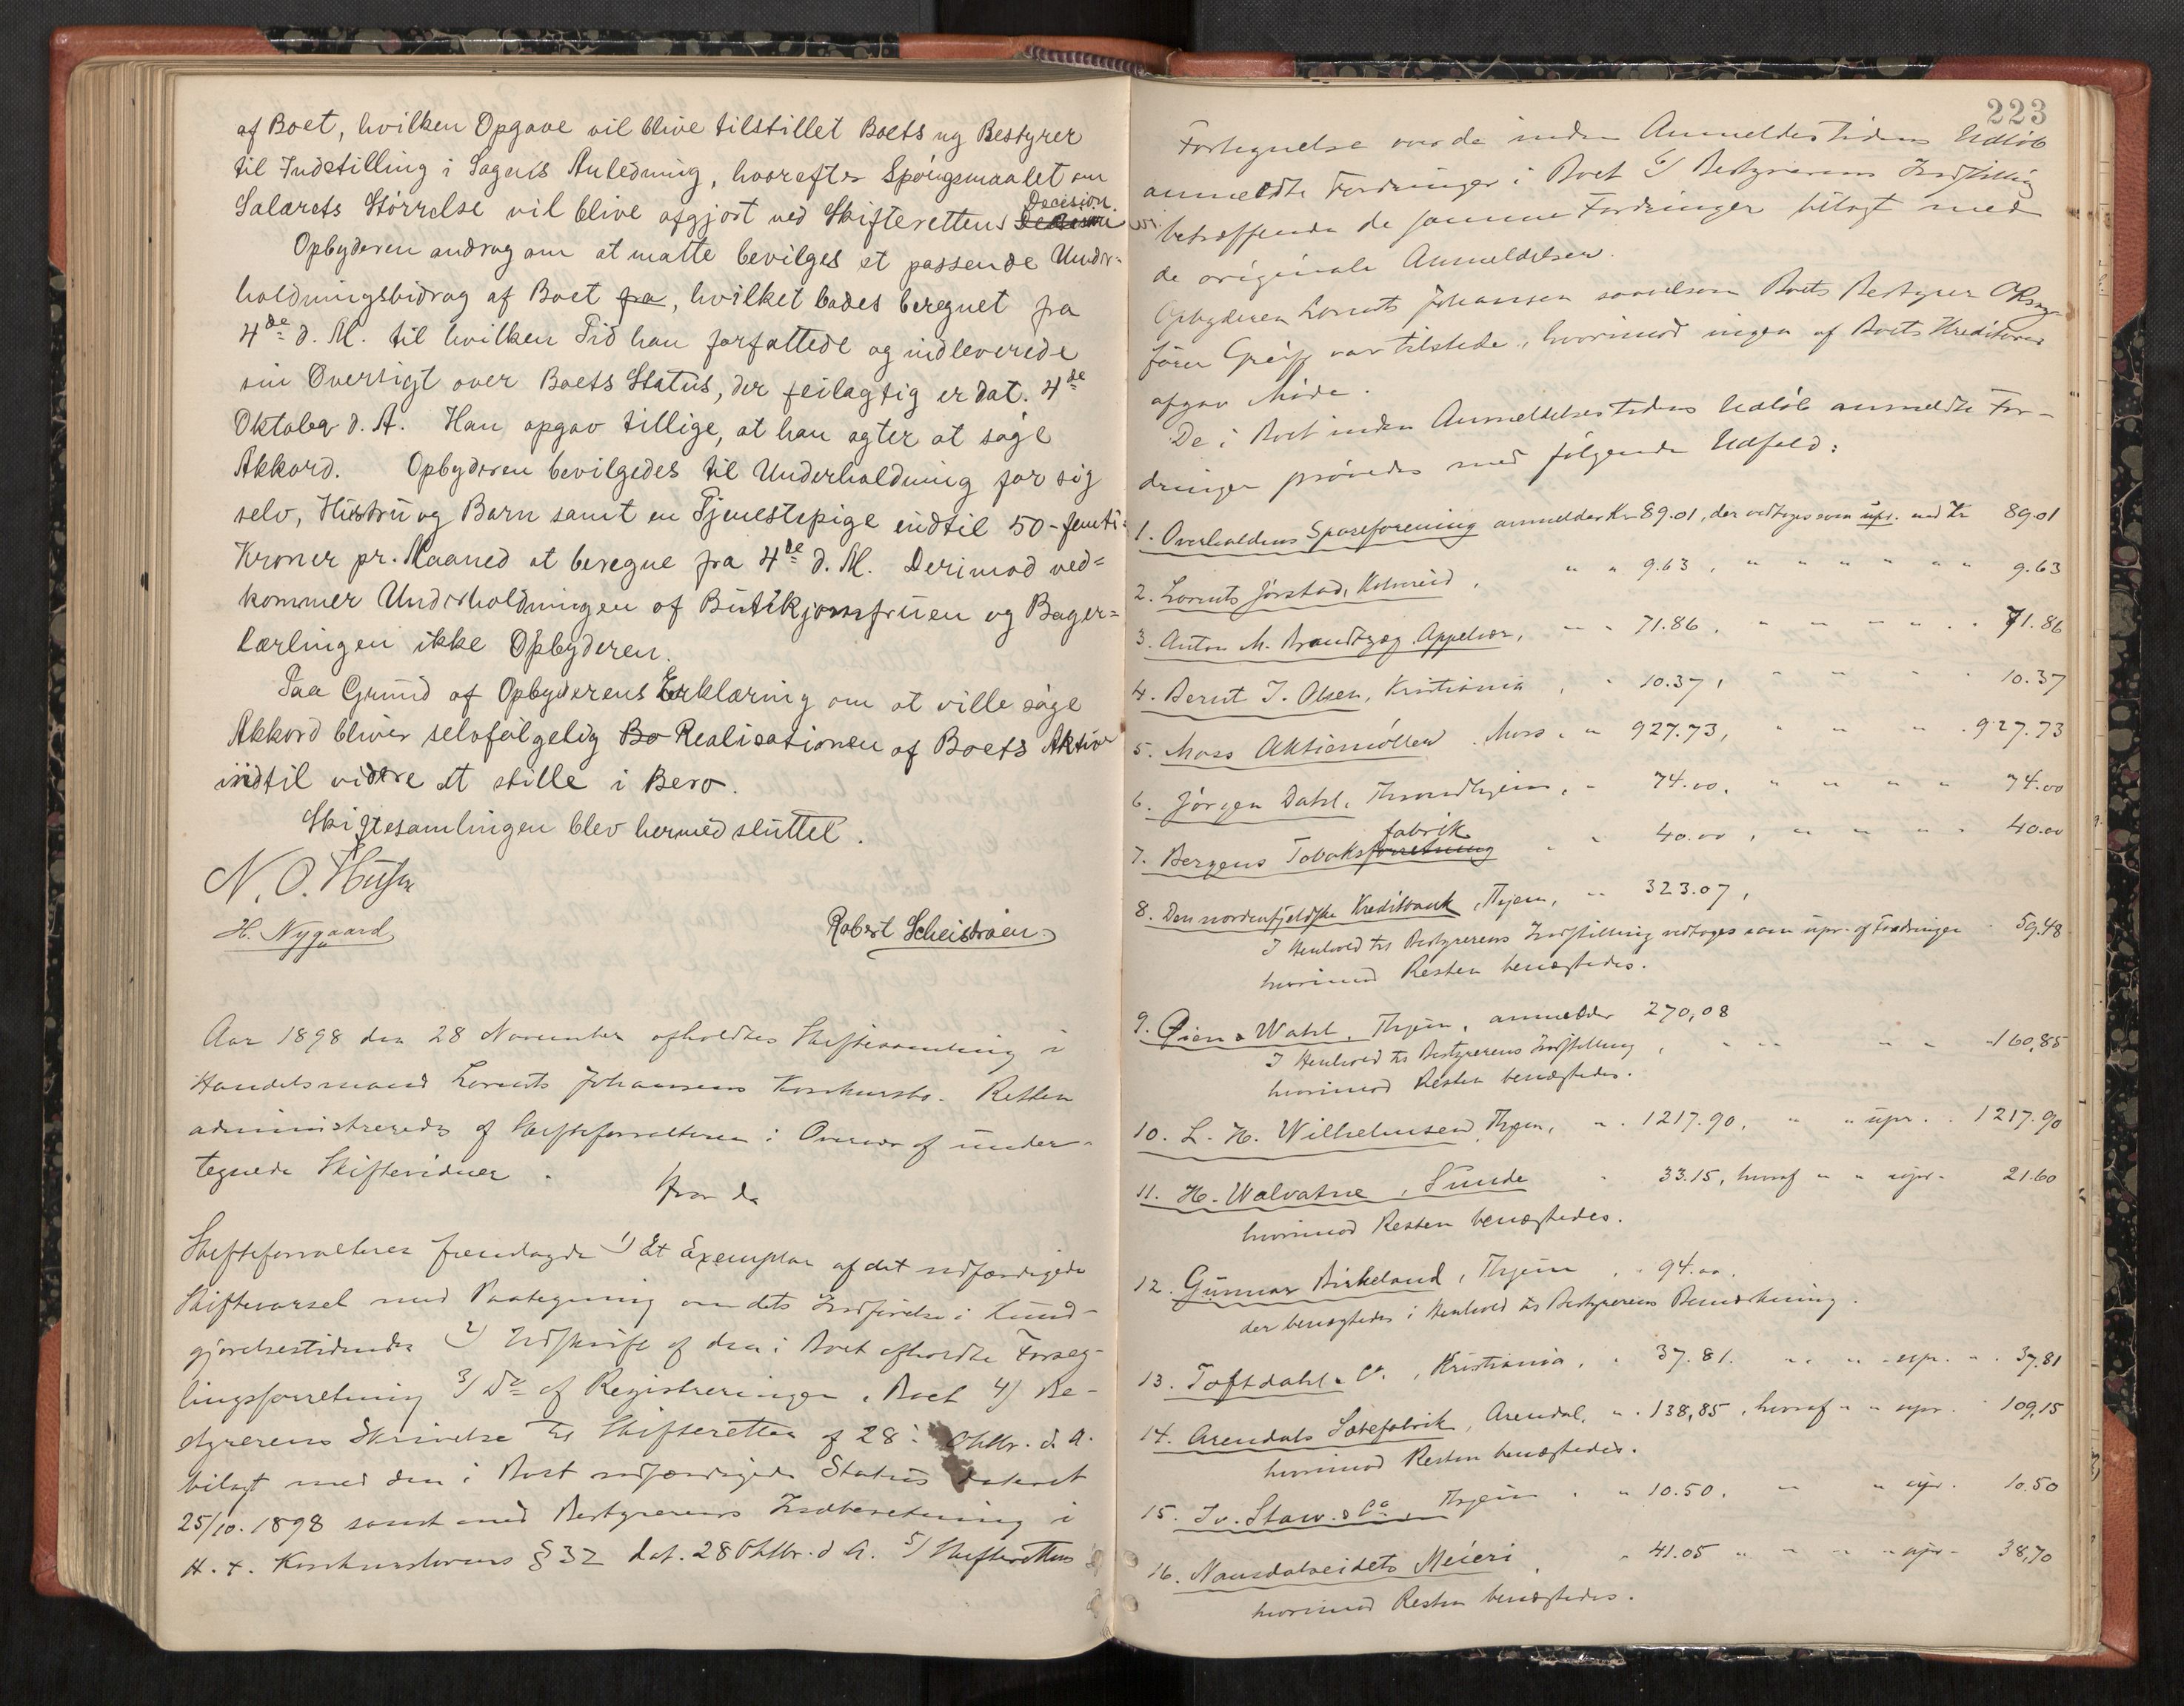 af Boet, hvilken Opgave vil blive tilstillet Boets ny Bestyrer
til Indstilling i Sagens Anledning, hvorefter Spörgsmaalet om
Salærets Störrelse vil blive afgjort ved Skifterettens Decision.
Opbyderen androg om at matte bevilges et passende Under-
holdningsbidrag af Boet fra, hvilket bades beregnet fra
4de d. M. til hvilken Tid han forfattede og indleverede
sin Oversigt over Boets Status, der feilagtig er dat. 4de
Oktober d. A. Han opgav tillige, at han agter at søge
Akkord. Opbyderen bevilgedes til Underholdning for sig
selv, Hustru og Barn samt en Tjenestepige indtil 50-femti-
Kroner pr. Maaned at beregne fra 4de d. M. Derimod ved=
kommer Underholdningen af Butikjomfruen og Bager=
lærlingen ikke Opbyderen.
Paa Grund af Opbyderens Erklæring om at ville søge
Akkord bliver selvfølgelig Bo Realisationen af Boets Aktiva
indtil videre at stille i Bero.
Skiftesamlingen blev hermed sluttet.
N. O.
H. Nygaard
Robert
Aar 1898 den 28 November afholdtes Skiftesamling i
Handelsmand Lorents Johansens Konkursbo. Retten
administreredes af Skifteforvalteren i Overvær af under-
tegnede Skiftevidner.
Hvor da
Skifteforvalteren fremlagde 1) Et Exemplar af det udfærdigede
Skiftevarsel med Paategning om dets Indførelse i Kund-
gjørelsestidende 2) Udskrift af den i Boet afholdte Forseg-
lingsforretning 3) Do af Registreringen i Boet 4) Be-
styrerens Skrivelse til Skifteretten af 28 Oktbr. d. A.
bilagt med den i Boet udfærdigede Status dateret
25/10. 1898 samt med Bestyrerens Indberetning i
H. t. Konkurslovens § 32 dat. 28 Oktbr. d A. 5) Skifterettens
223
Fortegnelse over de inden Anmeldestidens Udløb
anmeldte Fordringer i Boet 6) Bestyrerens Indstilling
betræffende de samme Fordringer bilagt med
de originale Anmeldelser.
Opbyderen Lorents Johansen saavelsom Boets Bestyrer ORsag-
fører Greiff var tilstede, hvorimod ingen af Boets Kreditorer
afgav Møde.
De i Boet inden Anmeldelsestidens Udløb anmeldte For-
dringer prøvedes med følgende Udfald:
1. Overhaldens Spareforening anmelder Kr 89.01, der vedtoges som upr. med Kr 89.01
2. Lorents Jørstad, " " 9.63, " " " " " 9.63
3. Anton M. Brandtzæg Appelvær, " " 71.86, " " " " 71.86
4. Bernt J. Olsen, Kristiania, " 10.37, " " " " 10.37
5. Moss Aktiemøller, Moss " " 927.73, " " " 927.73
6. Jørgen Dahl, Throndhjem, " 74.00, " " " " 74.00
7. Bergens Tobaksforretning fabrik " " 40.00, " " " " 40.00
8. Den nordenfjeldske Kreditbank, Thjem, " 323.07,
I Henhold til Bestyrerens Indstilling vedtoges som upr. af Fordringen 59.48
hvorimod Resten benægtedes.
9. Øien & Wahl, Thjem, anmelder 270,08
I Henhold til Bestyrerens Indstilling, " " " " 160,85
hvorimod Resten benægtedes.
10. L. H. Wilhelmsen, Thjem, " 1217.90, " " upr. 1217.90
11. H. Walvatne, Sunde " 33.15, hvoraf " " upr. 21.60
hvorimod Resten benægtedes.
12. Gunnar Birkeland, Thjem, " 94.00.
der benægtedes i Henhold til Bestyrerens Bemærkning.
13. Toftdahl & Co., Kristiania, " 37.81. " " upr. " 37.81
14. Arendals Sæbefabrik, Arendal, " 138,85, hvoraf " " upr. 109,15
hvorimod Resten benægtedes.
15. Iv. Staw. & Co, Thjem " " 10.50. " " upr. 10.50
16. Namsdalseidets Meieri " 41.05 " " " " upr. 38,70
hvorimod Resten benægtedes.